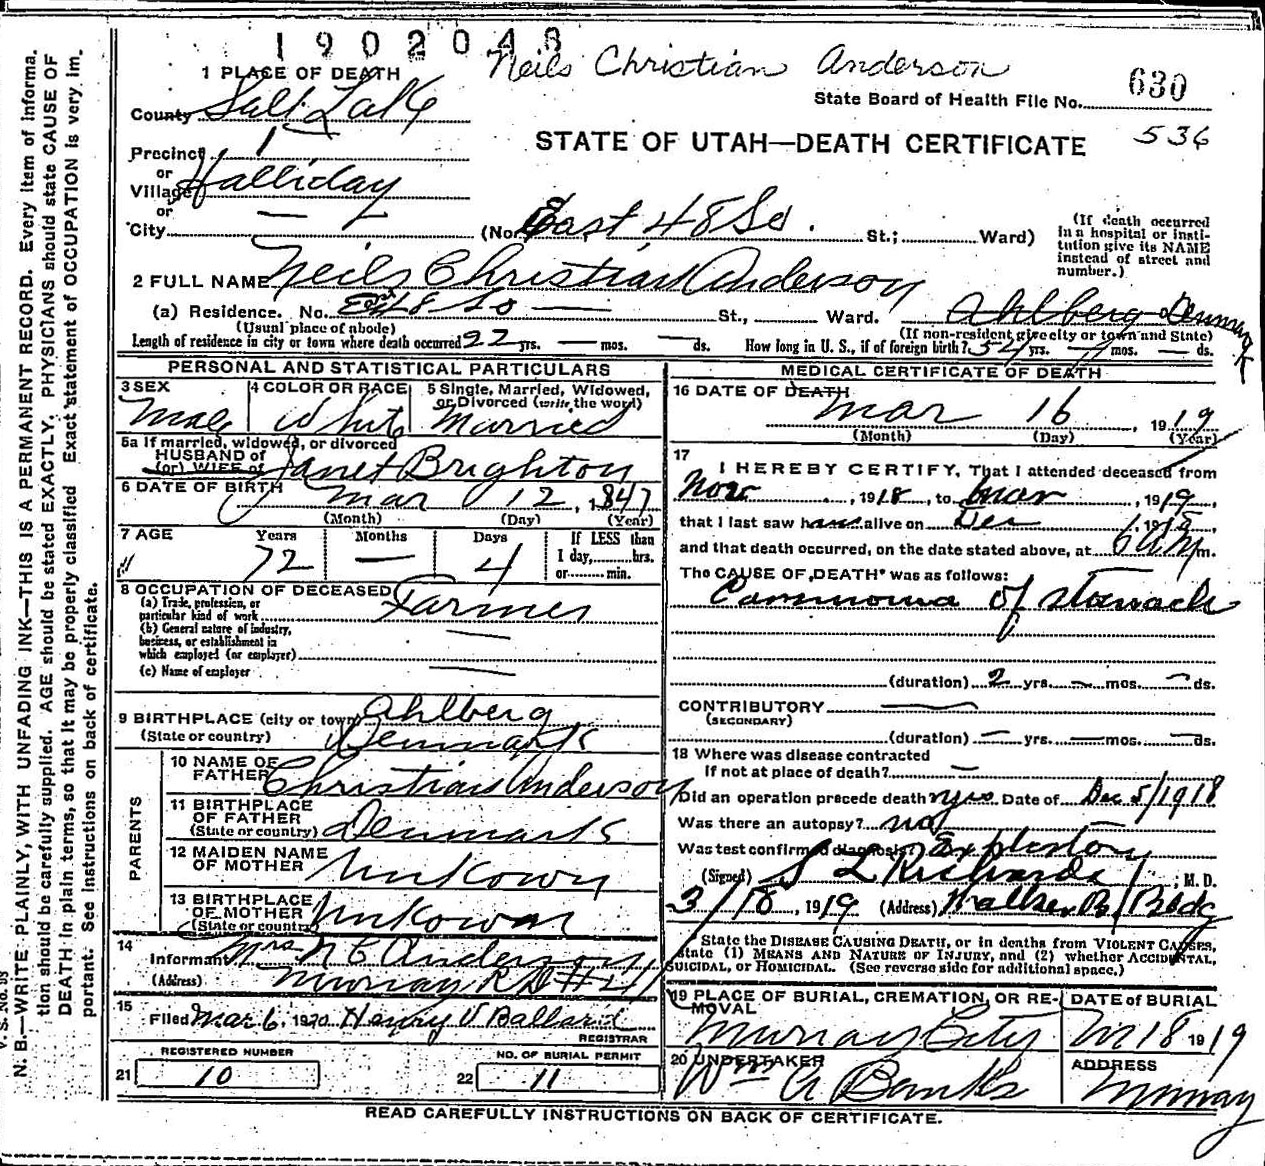 1902048
Neils Christian Anderson
1 PLACE OF DEATH
State Board of Health File No. 630
County Salt Lake
536
STATE OF UTAH—DEATH CERTIFICATE
Precinct 1
or
Village Halliday
or
City — (No. East 48 So. St.; Ward)
(If death occurred in a hospital or institution give its NAME instead of street and number.)
2 FULL NAME Neils Christian Anderson
(a) Residence. No. East 48 So — St., Ward. Ahlberg Denmark
(Usual place of abode) (If non-resident give city or town and State)
Length of residence in city or town where death occurred 22 yrs. — mos. — ds. How long in U. S., if of foreign birth? 54 yrs. — mos. — ds.
PERSONAL AND STATISTICAL PARTICULARS
3 SEX Male
4 COLOR OR RACE White
5 Single, Married, Widowed, or Divorced (write the word) Married
5a If married, widowed, or divorced
HUSBAND of
(or) WIFE of Janet Brighton
6 DATE OF BIRTH Mar 12, 1847
(Month) (Day) (Year)
7 AGE Years 72 Months — Days 4
If LESS than
1 day, hrs.
or min.
8 OCCUPATION OF DECEASED Farmer
(a) Trade, profession, or
particular kind of work
(b) General nature of industry,
business, or establishment in
which employed (or employer) —
(c) Name of employer —
9 BIRTHPLACE (city or town) Ahlberg
(State or country) Denmark
PARENTS
10 NAME OF
FATHER Christian Anderson
11 BIRTHPLACE
OF FATHER
(State or country) Denmark
12 MAIDEN NAME
OF MOTHER Unkown
13 BIRTHPLACE
OF MOTHER
(State or country) Unkown
14
Informant Mrs N C Anderson
(Address) Murray R D #4
15
Filed Mar 6, 1920 Henry V Ballard
REGISTRAR
REGISTERED NUMBER
21 10
NO. OF BURIAL PERMIT
22 11
MEDICAL CERTIFICATE OF DEATH
16 DATE OF DEATH
Mar 16, 1919
(Month) (Day) (Year)
17
I HEREBY CERTIFY, That I attended deceased from
Nov, 1918, to Mar, 1919,
that I last saw him alive on Dec 1, 19
and that death occurred, on the date stated above, at 6 AM m.
The CAUSE OF DEATH* was as follows:
Carcinoma of stomach
(duration) 2 yrs. — mos. — ds.
CONTRIBUTORY —
(SECONDARY)
(duration) — yrs. — mos. — ds.
18 Where was disease contracted
If not at place of death? —
Did an operation precede death? yes Date of Dec 5/1918
Was there an autopsy? no
Was test confirmed diagnosis? Exploratory
(Signed) S L Richards, M. D.
3/18, 1919 (Address) Walker B. Bldg
* State the DISEASE CAUSING DEATH, or in deaths from VIOLENT CAUSES,
state (1) MEANS AND NATURE OF INJURY, and (2) whether ACCIDENTAL,
SUICIDAL, OR HOMICIDAL. (See reverse side for additional space.)
19 PLACE OF BURIAL, CREMATION, OR RE-
MOVAL
Murray City
DATE of BURIAL
M 18 1919
20 UNDERTAKER
Wm A Banks
ADDRESS
Murray
READ CAREFULLY INSTRUCTIONS ON BACK OF CERTIFICATE.
V. S. No.
N. B.—WRITE PLAINLY, WITH UNFADING INK—THIS IS A PERMANENT RECORD. Every item of informa-
tion should be carefully supplied. AGE should be stated EXACTLY. PHYSICIANS should state CAUSE OF
DEATH in plain terms, so that it may be properly classified. Exact statement of OCCUPATION is very im-
portant. See instructions on back of certificate.